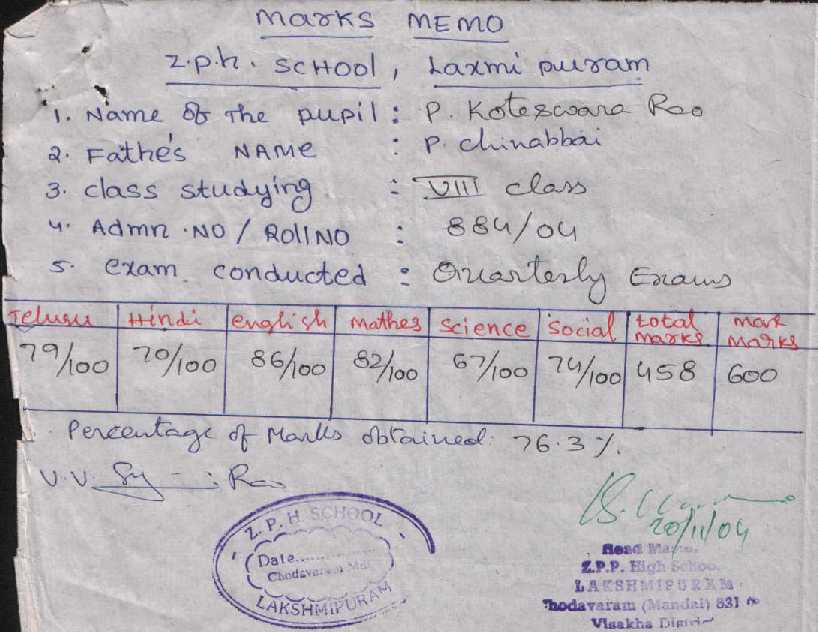 Marks MEMO
Z.p.h. SCHOOL, Laxmi puram
1. Name of The pupil : P. Koteswara Rao
2. Fathe's NAME : P. chinabbai
3. class studying : VIII class
4. Admn.NO / RollNO : 884/04
5. exam conducted : Quarterly Exams
Telugu Hindi english Mathes science social total marks max marks
79/100 70/100 86/100 82/100 67/100 74/100 458 600
Percentage of Marks obtained: 76.3 %.
V.V. Rao
20/11/04
Z.P.H SCHOOL
Date..............
Chodavaram Mdl
LAKSHMIPURAM
Head
Z.P.P. High School
LAKSHMIPURAM
Chodavaram (Mandal) 531
Visakha